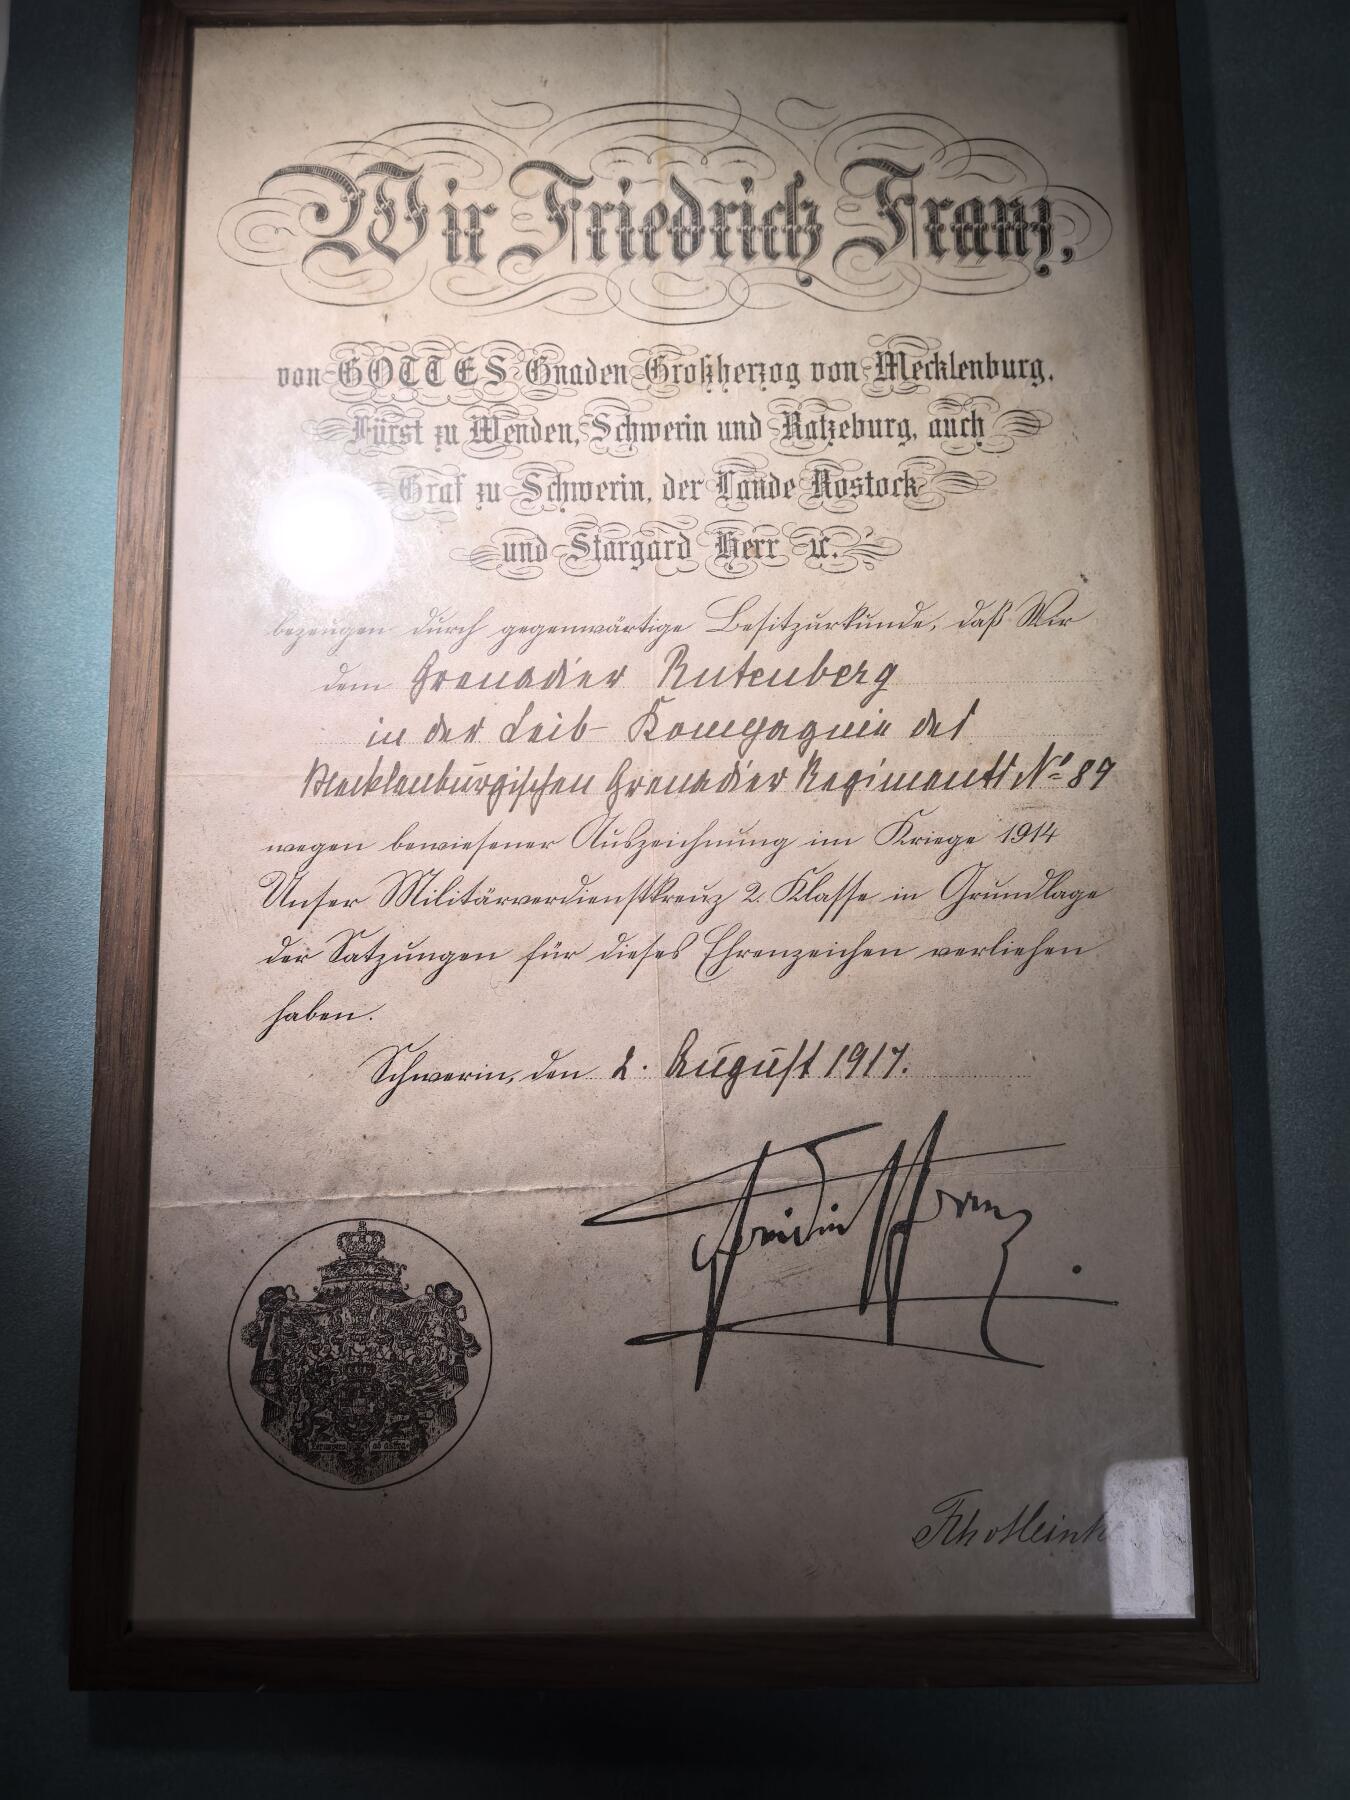 Wir Friedrich Franz,
von GOTTES Gnaden Großherzog von Mecklenburg,
Fürst zu Wenden, Schwerin und Ratzeburg, auch
Graf zu Schwerin, der Lande Rostock
und Stargard Herr ꝛc.
bezeugen durch gegenwärtige Besitzurkunde, daß Wir
dem Grenadier Rutenberg
in der Leib-Kompagnie des
Mecklenburgischen Grenadier Regiments No 89
wegen bewiesener Auszeichnung im Kriege 1914
Unser Militärverdienstkreuz 2. Klasse in Grundlage
der Satzungen für dieses Ehrenzeichen verliehen
haben.
Schwerin, den 2. August 1917.
Friedrich Franz
Per aspera ad astra